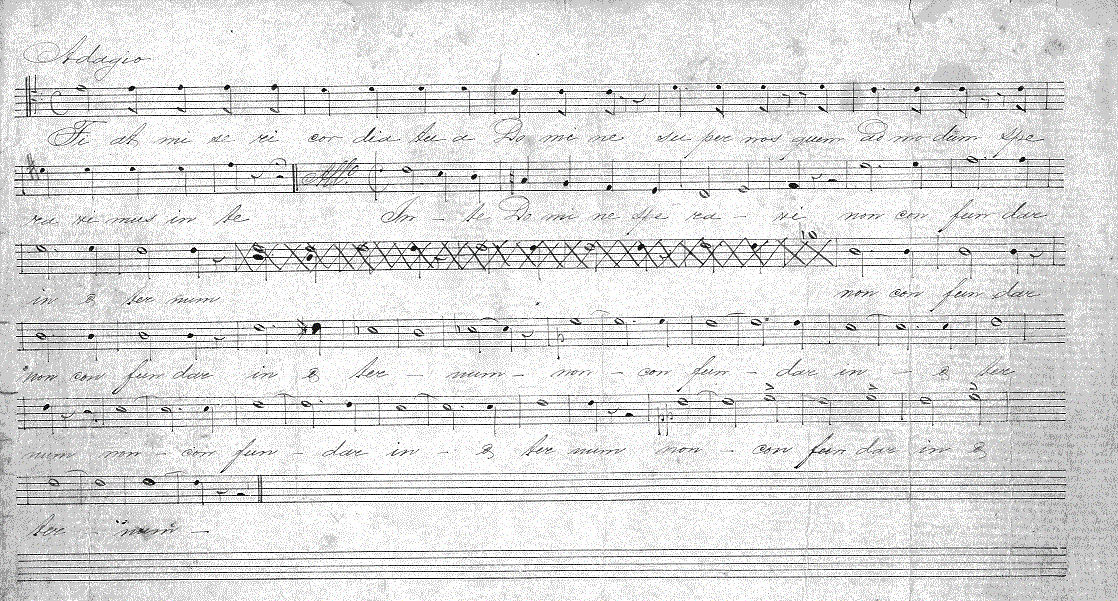 Adagio
Fi at mi se ri cor dia tu a Do mi ne su per nos quem ad mo dum spe
Allo
ra vi mus in te In - te Do mi ne spe ra - vi non con fun dar
10
in e ter num non con fun dar
non con fun dar in e ter - num - non - con fun - dar in - e ter
num non - con fun - dar in - e ter num non - con fun dar in e
ter - num -